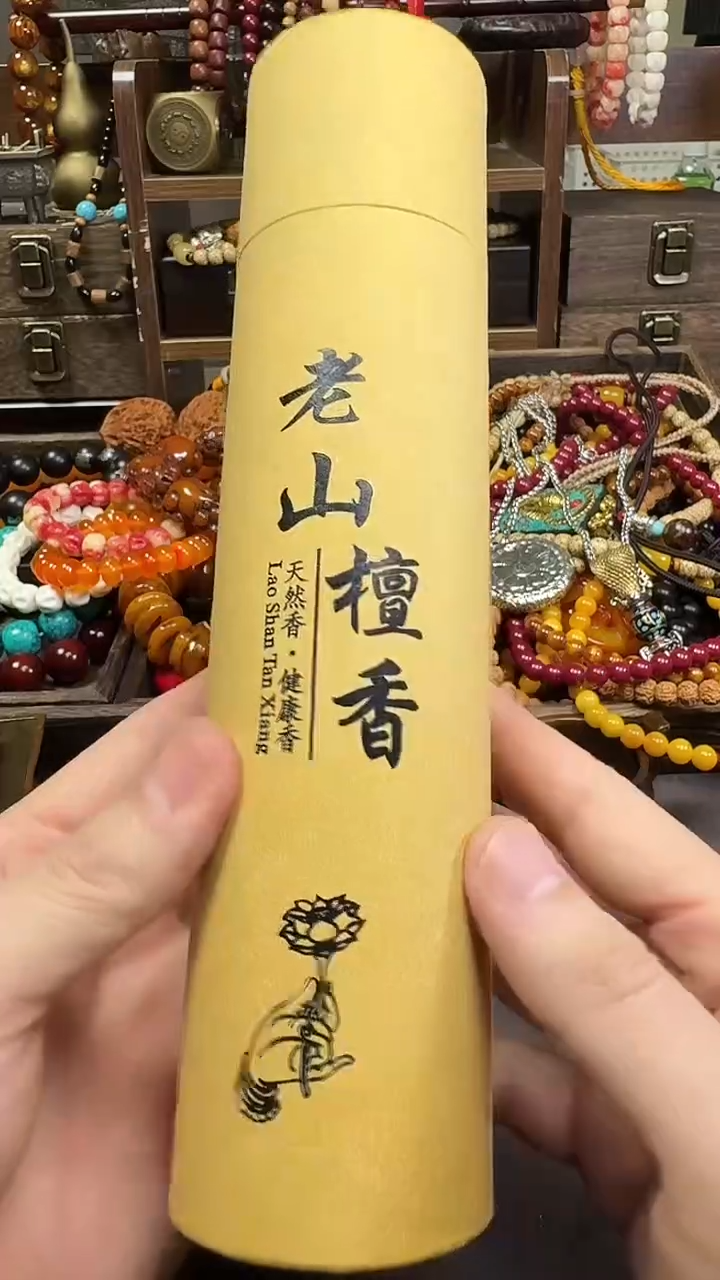 老山檀香
天然香·健康香
Lao Shan Tan Xiang